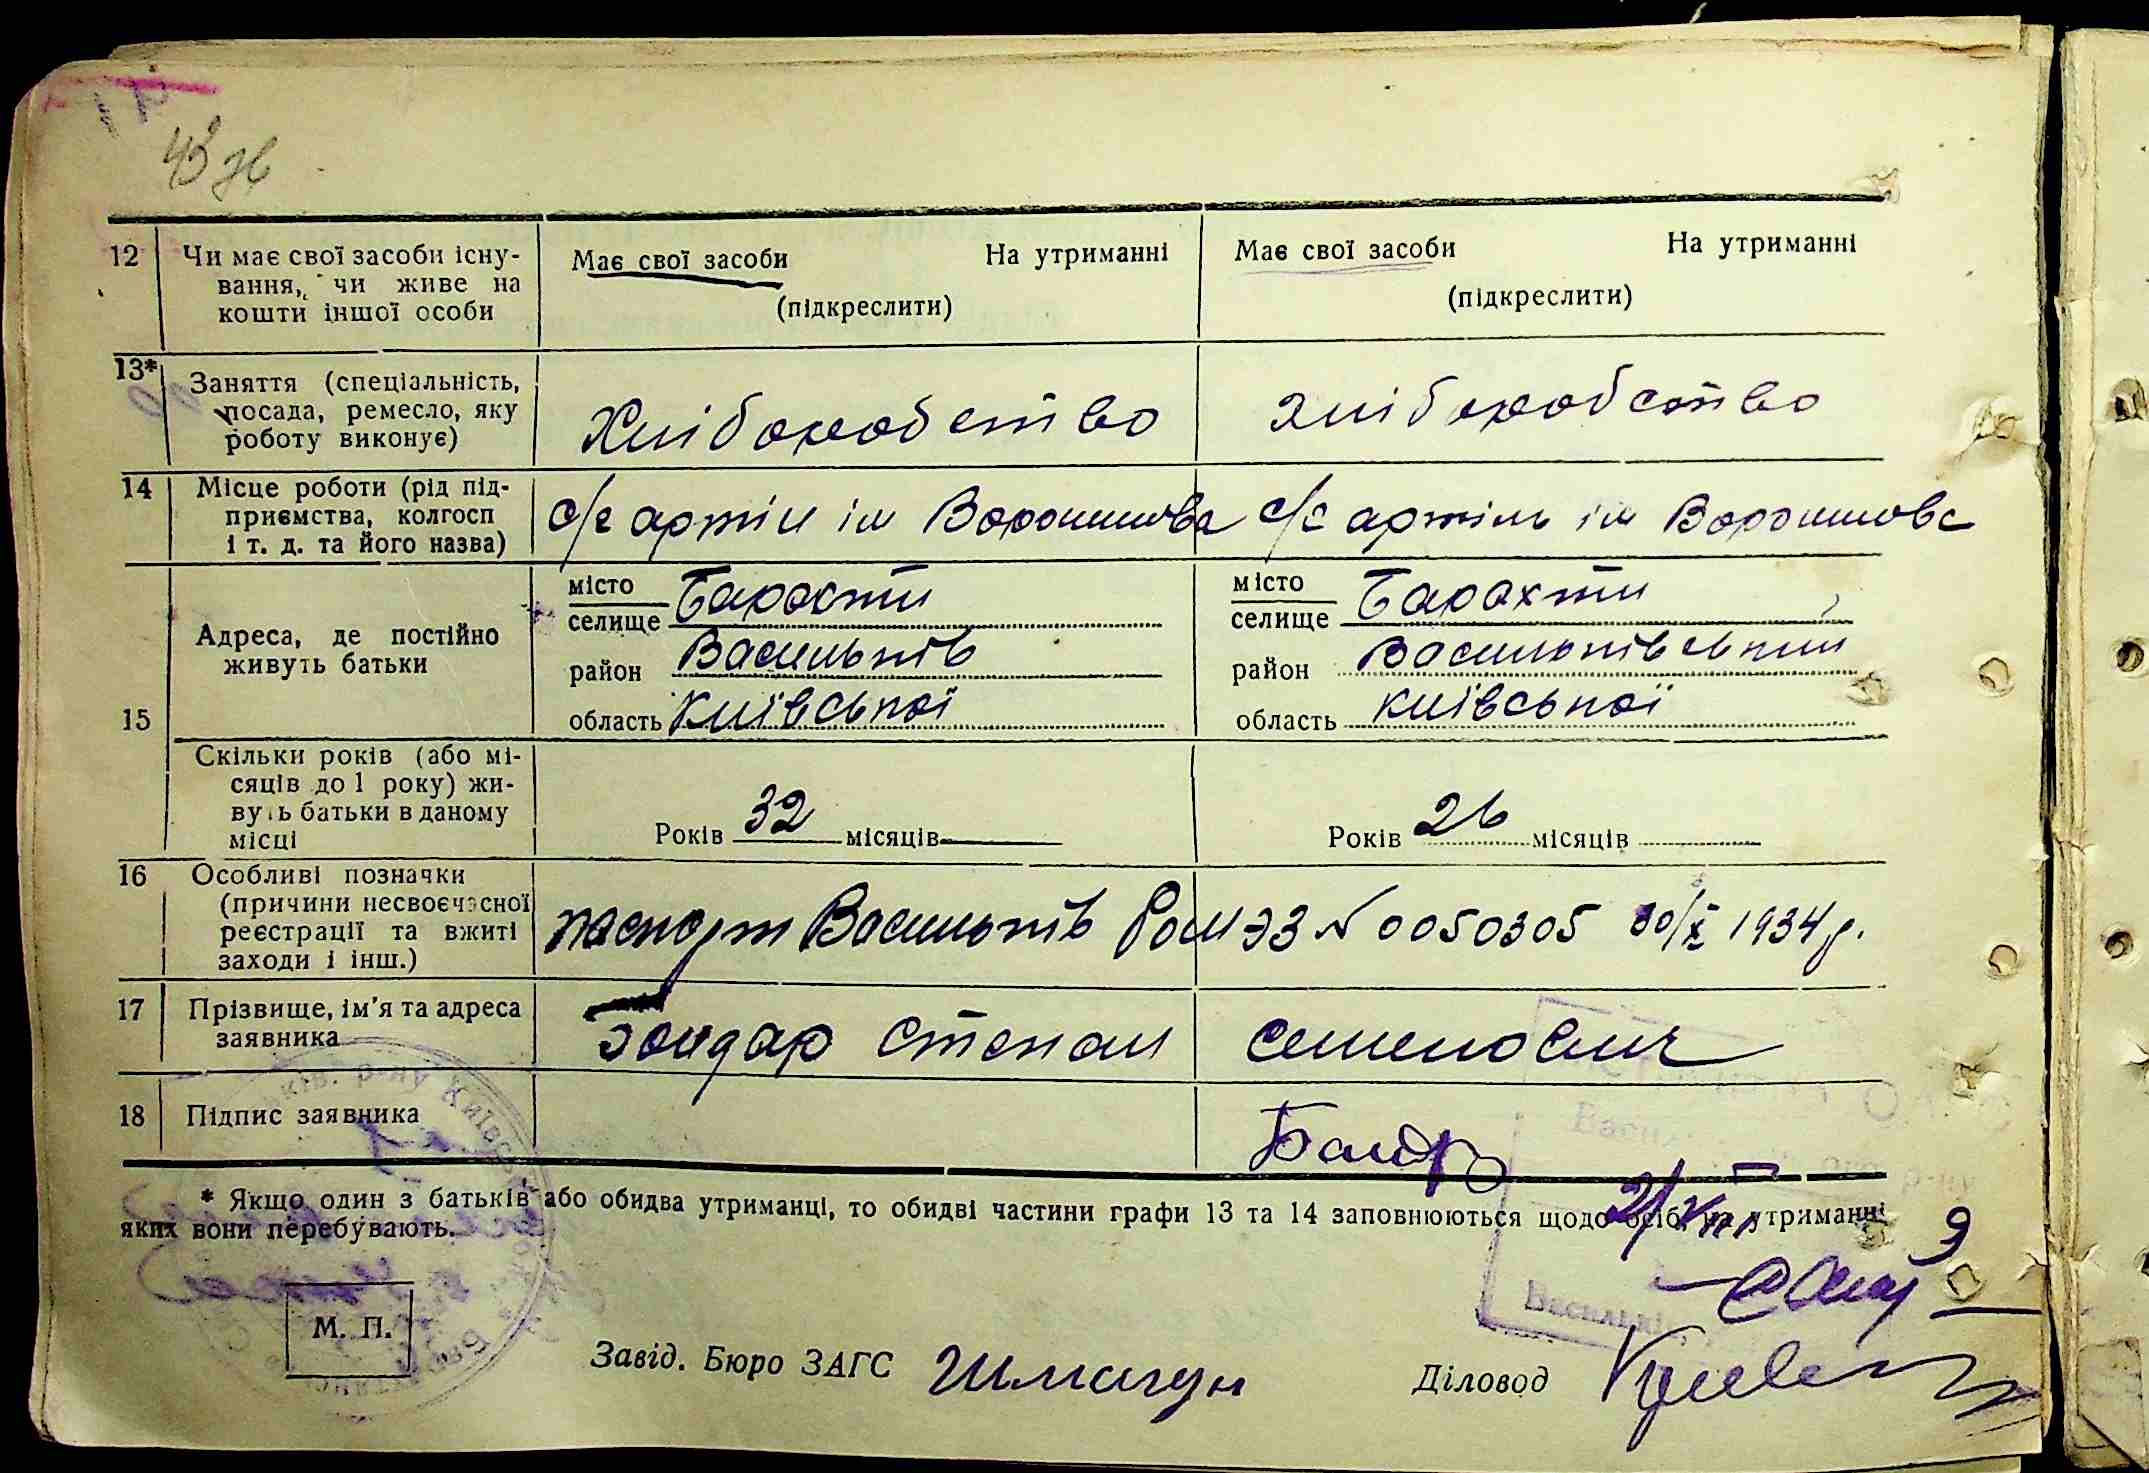 43 зв
12 Чи має свої засоби існу-
вання, чи живе на
кошти іншої особи
Має свої засоби На утриманні
(підкреслити)
Має свої засоби На утриманні
(підкреслити)
13* Заняття (спеціальність,
посада, ремесло, яку
роботу виконує)
Хліборобство
хліборобство
14 Місце роботи (рід під-
приємства, колгосп
і т. д. та його назва)
с/г артіл ім Ворошилова
с/г артіль ім Ворошилова
15 Адреса, де постійно
живуть батьки
місто
селище Барахти
район Васильків
область Київської
місто
селище Барахти
район Васильківський
область Київської
Скільки років (або мі-
сяців до 1 року) жи-
вуть батьки в даному
місці
Років 32 місяців
Років 26 місяців
16 Особливі позначки
(причини несвоєчасної
реєстрації та вжиті
заходи і інш.)
паспорт Васильків ЭЗ № 0050305 30/X 1934 р.
17 Прізвище, ім'я та адреса
заявника
Бондар Степан Семенович
18 Підпис заявника
* Якщо один з батьків або обидва утриманці, то обидві частини графи 13 та 14 заповнюються щодо осіб, на утриманні
яких вони перебувають.
М. П.
Завід. Бюро ЗАГС
Діловод